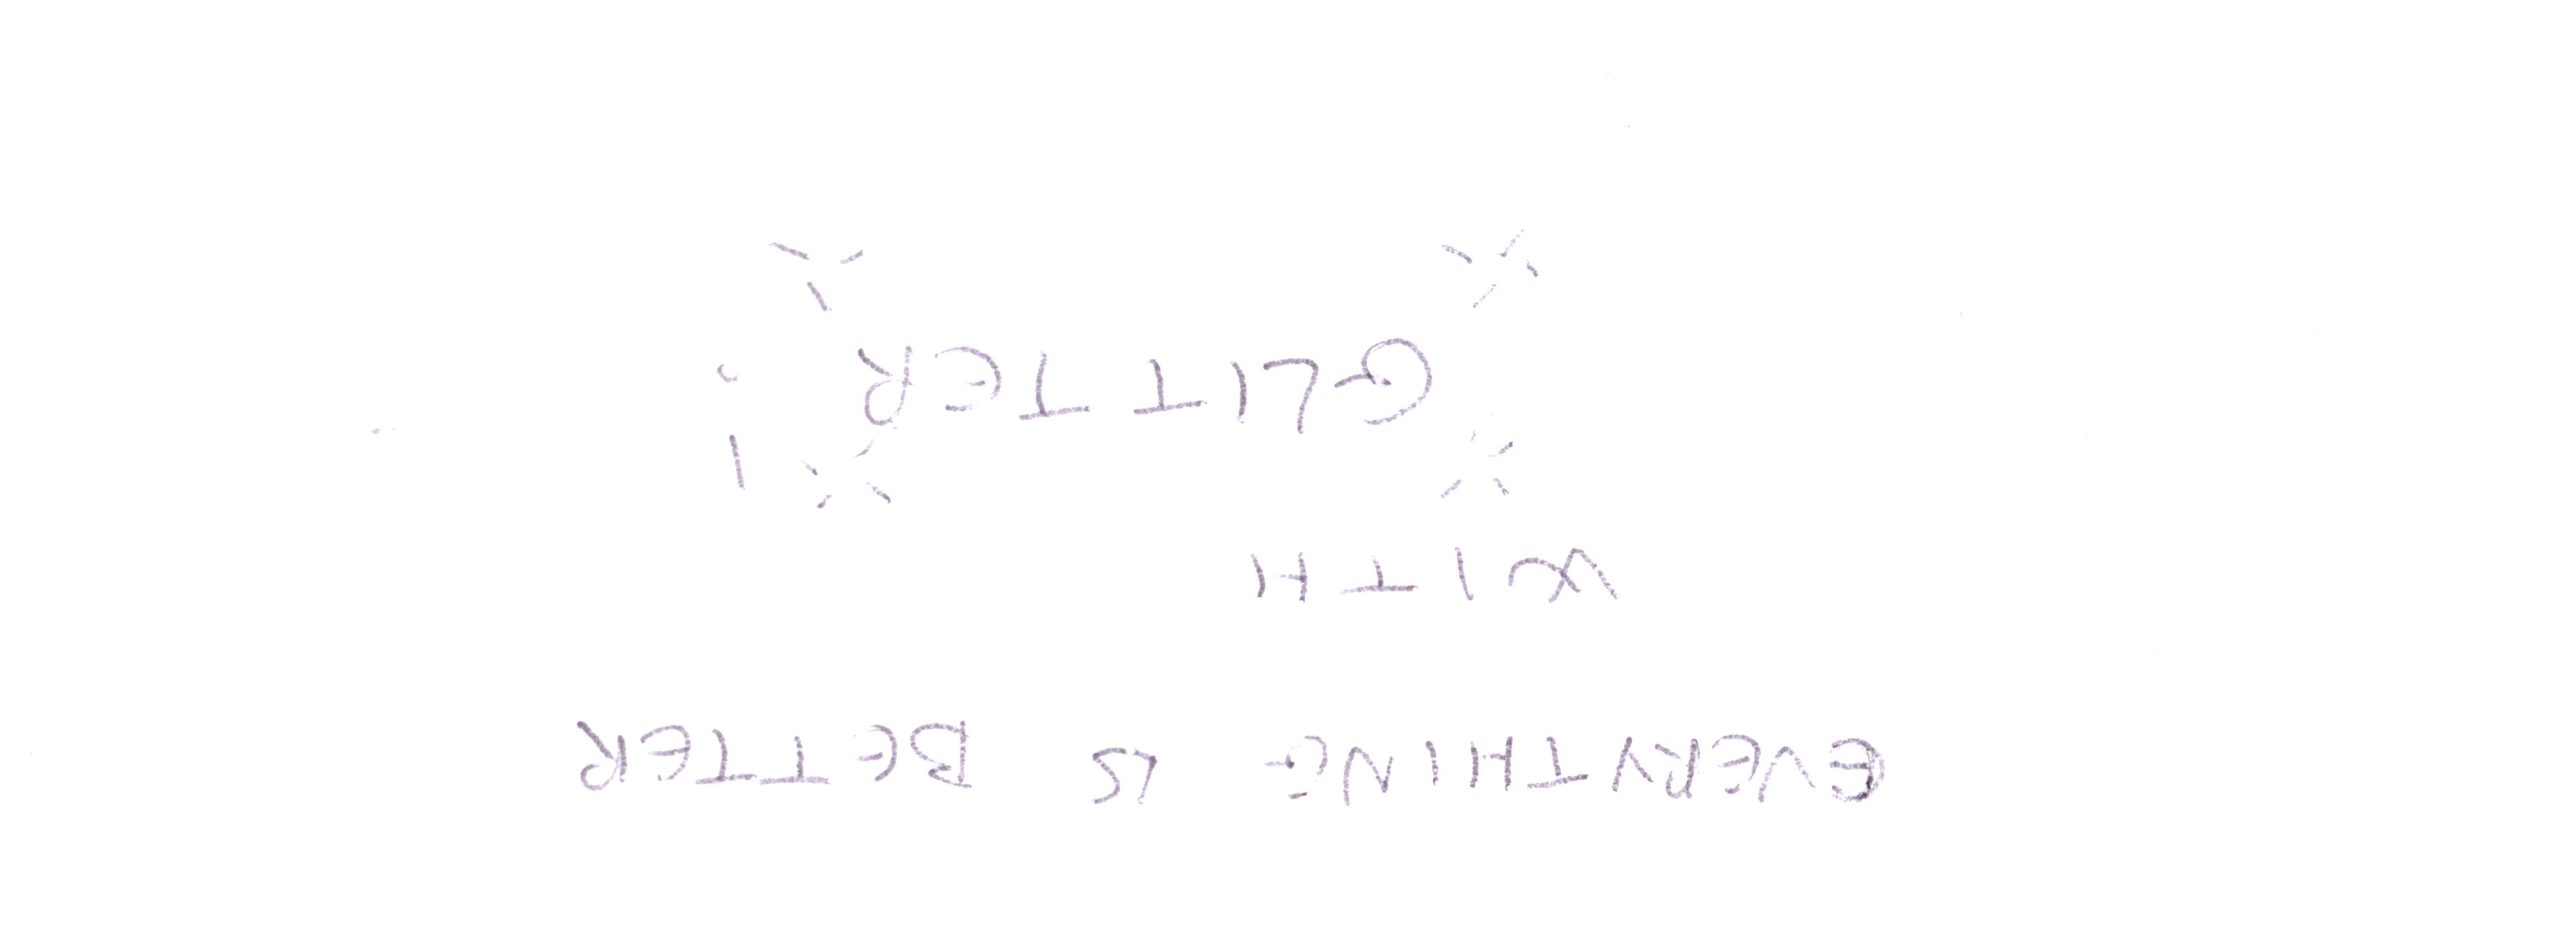 EVERYTHING IS BETTER
WITH
GLITTER !